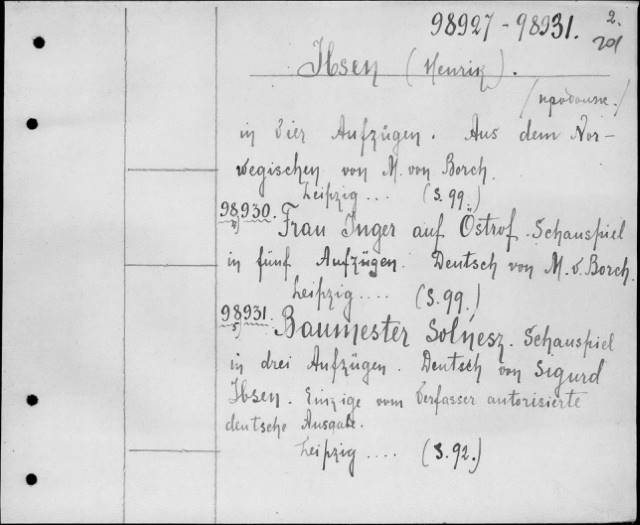 98927-98931. 2.
Ibsen (Henrik).
(продолж.)
in vier Aufzügen. Aus dem Nor-
wegischen von M. von Borch.
Leipzig... (S. 99.)
98930.
4) Frau Inger auf Östrof. Schauspiel
in fünf Aufzügen. Deutsch von M. v. Borch.
Leipzig.... (S. 99.)
98931.
5) Baumester Solnesz. Schauspiel
in drei Aufzügen. Deutsch von Sigurd
Ibsen. Einzige vom Verfasser autorisierte
deutsche Ausgabe.
Leipzig.... (S. 92.)